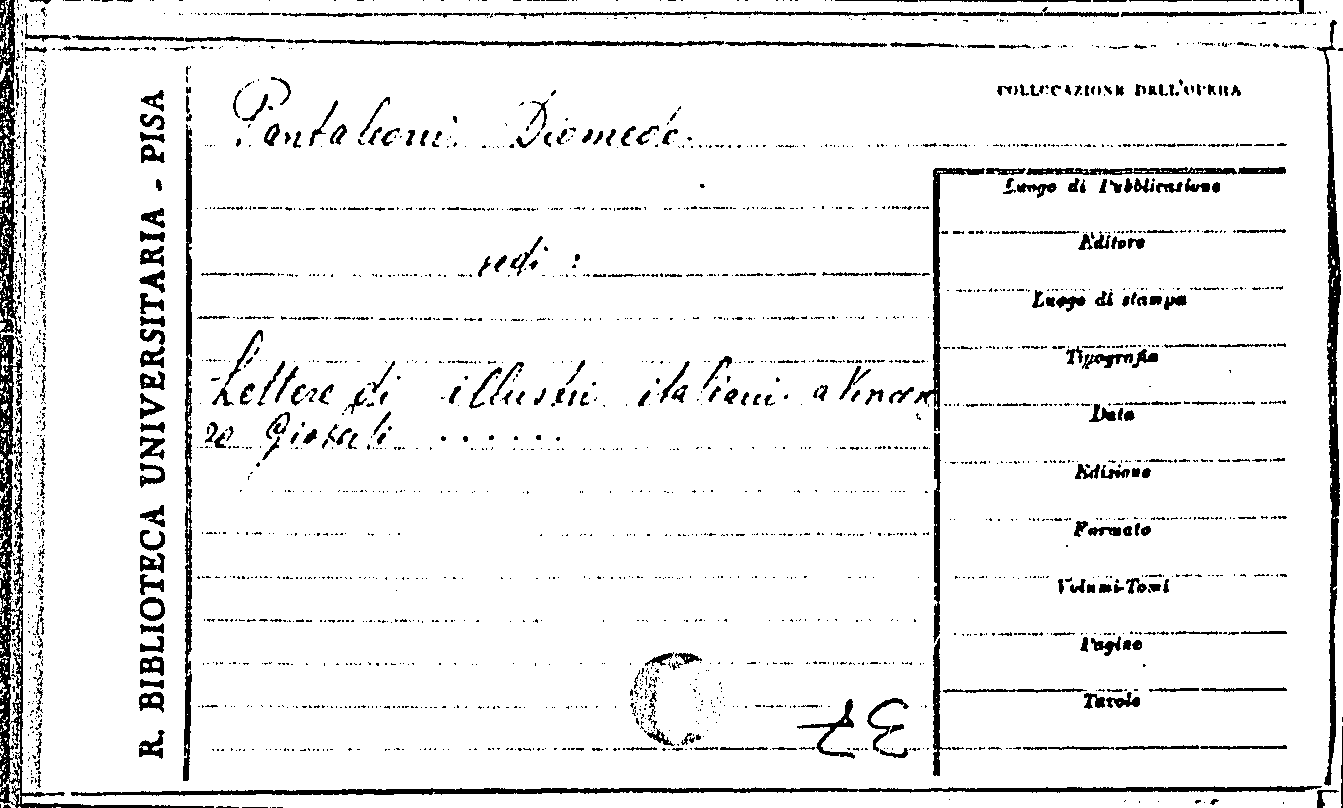 R. BIBLIOTECA UNIVERSITARIA - PISA
COLLOCAZIONE DELL'OPERA
Pantaleoni Diomede.
Luogo di Pubblicazione
Editore
vedi :
Luogo di stampa
Tipografia
Lettere di illustri italiani a Vincen
zo Gioberti ......
Data
Edizione
Formato
Volumi-Tomi
Pagine
Tavole
37